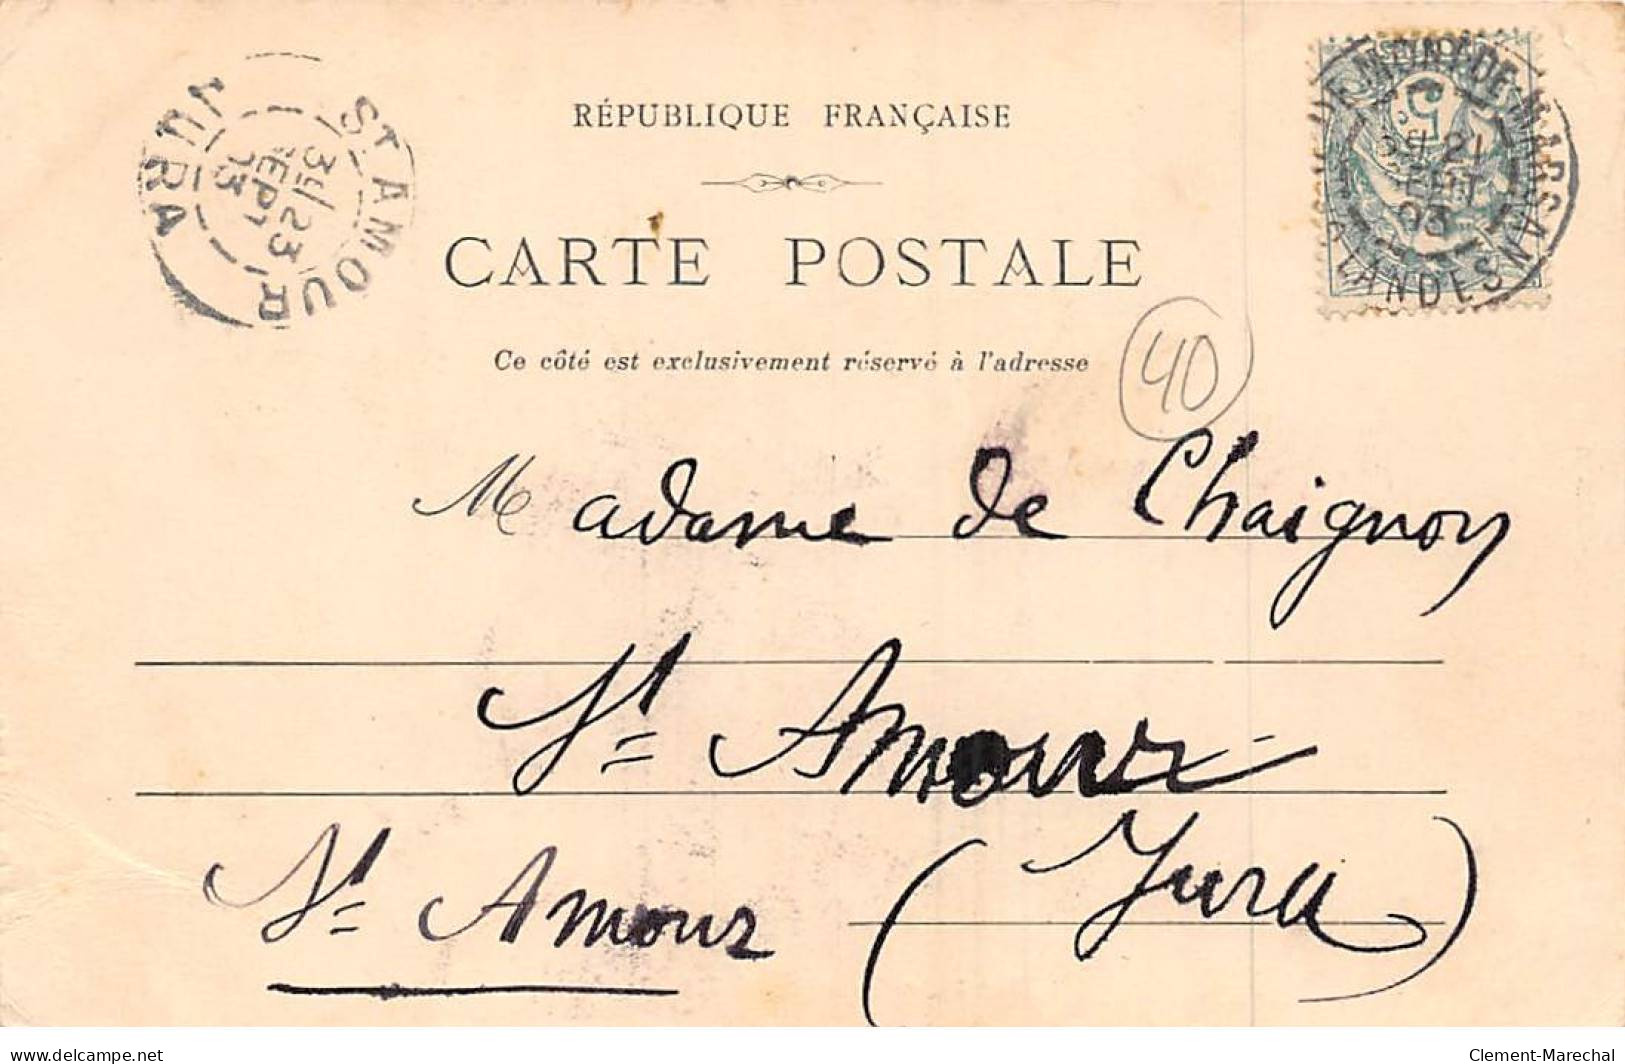 RÉPUBLIQUE FRANÇAISE
CARTE POSTALE
Ce côté est exclusivement réservé à l'adresse
ST AMOUR
JURA
3E/23
SEPT
03
MONT-DE-MARSAN
LANDES
21
SEPT
03
5
40
Madame de Chaignon
St Amour
St Amour (Jura)
delcampe.net
Clement-Marechal